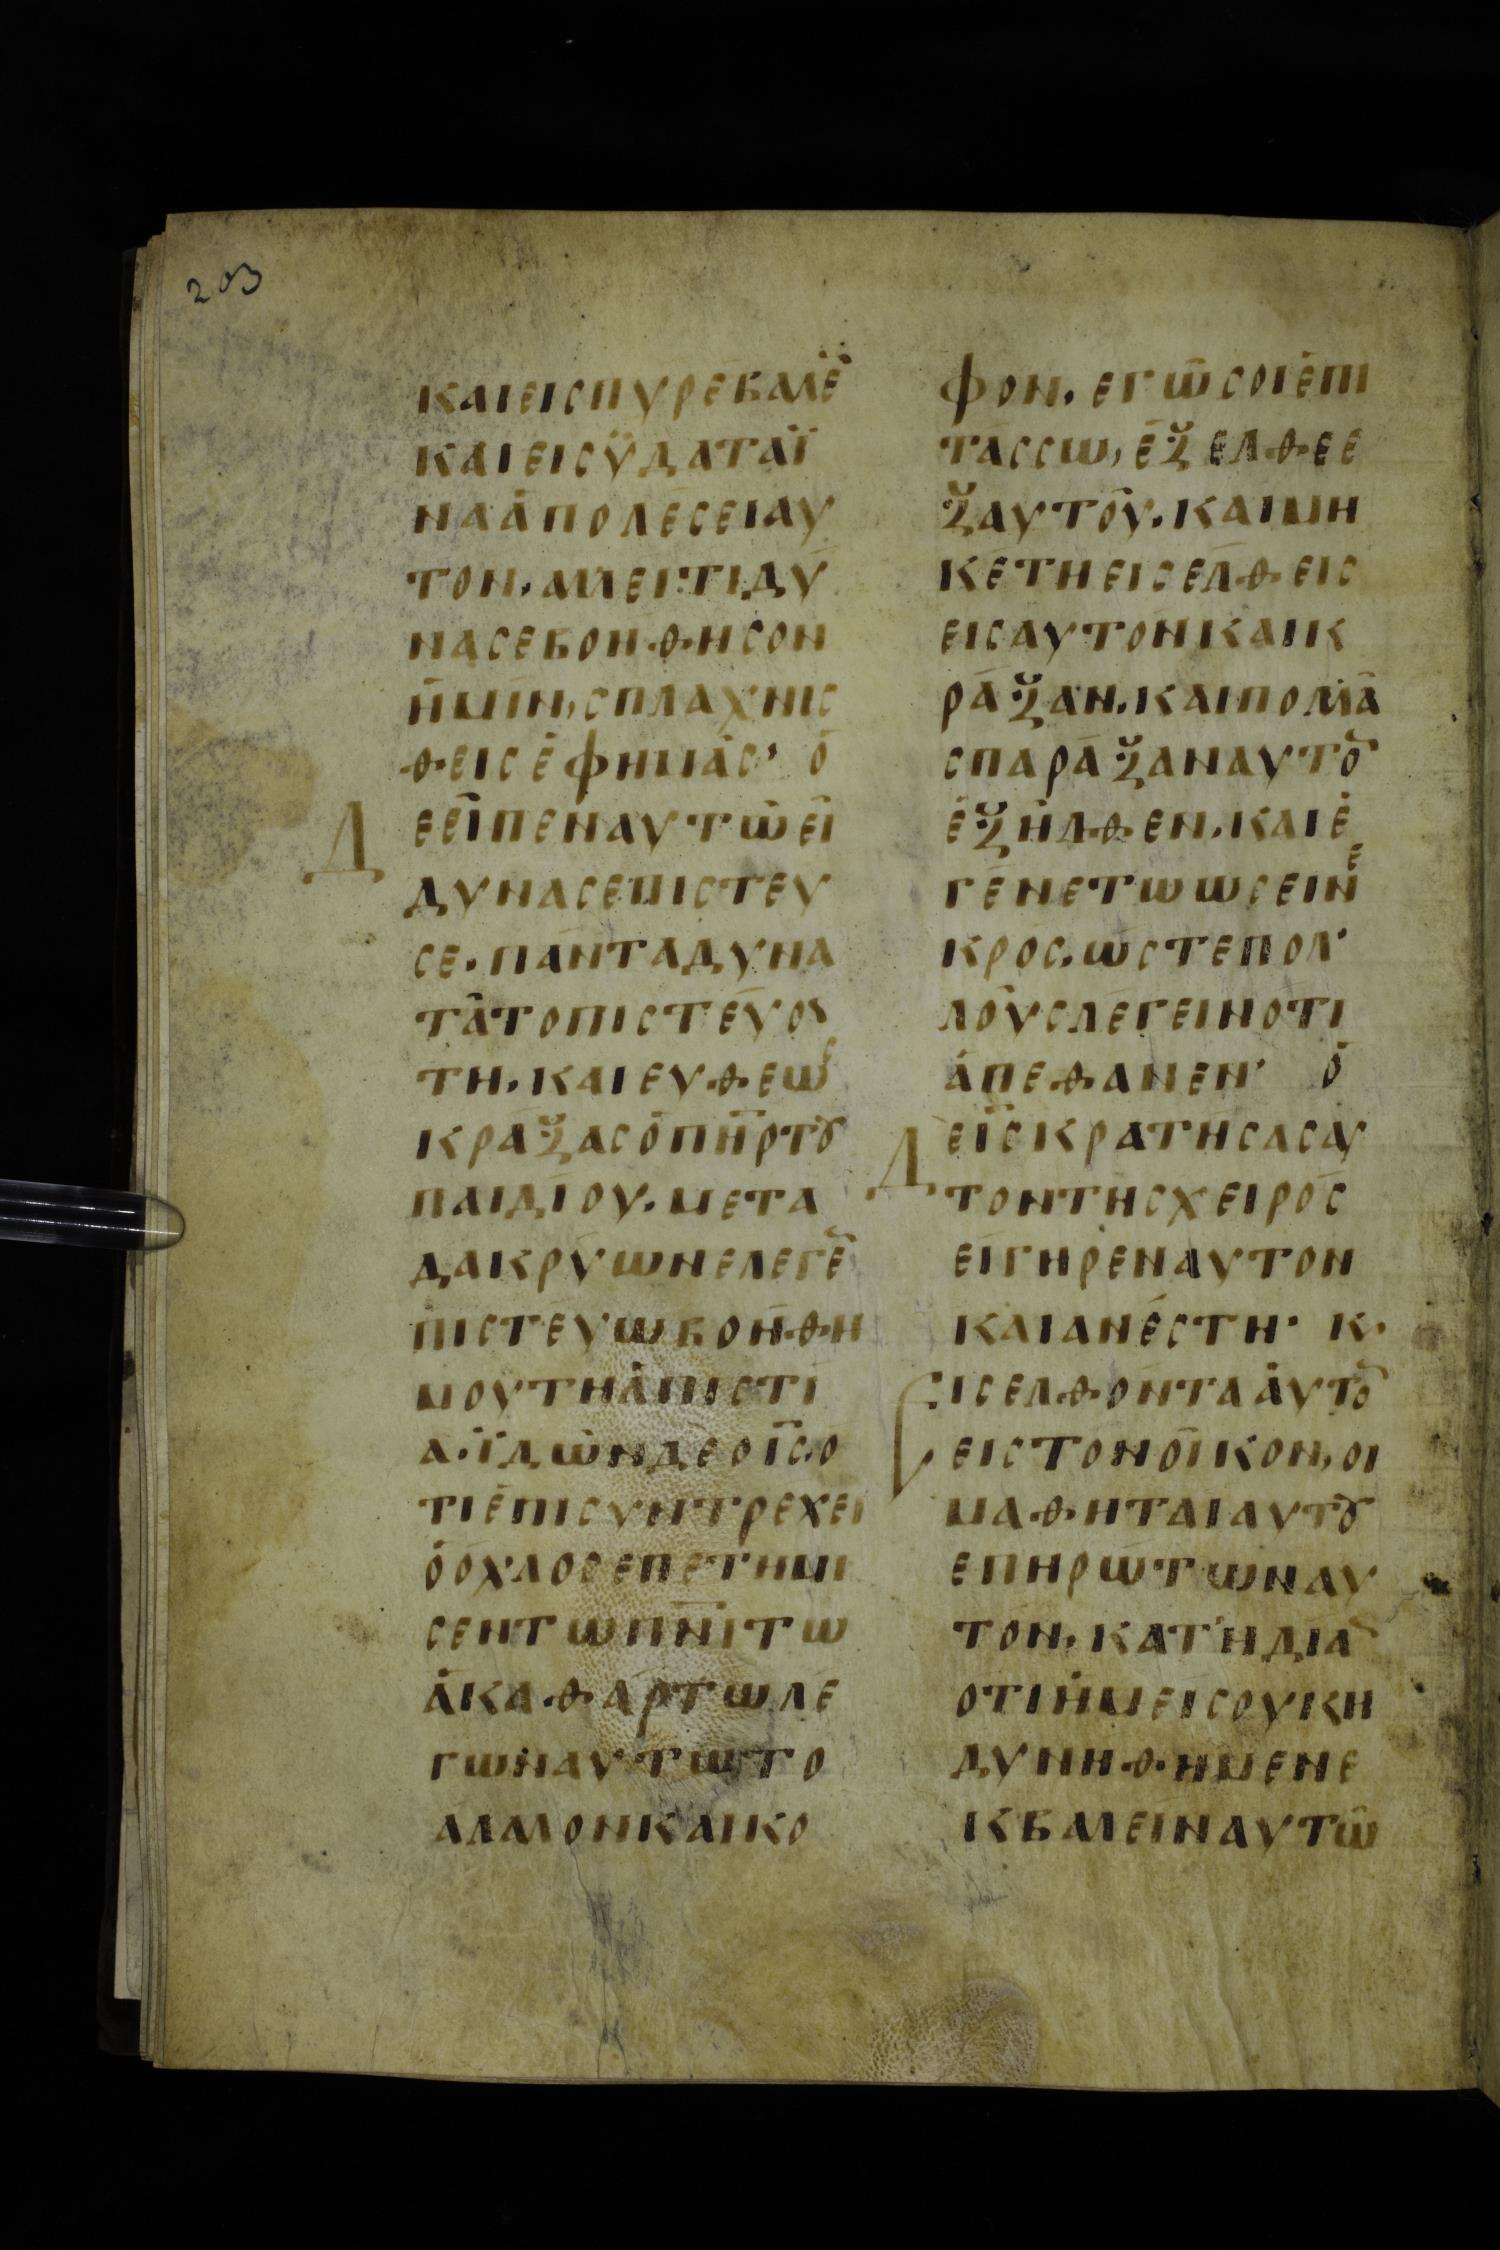 203
ΚΑΙΕΙΣΠΥΡΕΒΑΛΕ̄
ΚΑΙΕΙΣΫΔΑΤΑΪ
ΝΑΑΠΟΛΕΣΕΙΑΥ
ΤΟΝ, ΑΛΛΕΙΤΙΔΥ
ΝΑΣΕΒΟΗΘΗΣΟΝ
ΗΜΙΝ, ΣΠΛΑΧΝΙΣ
ΘΕΙΣΕΦΗΜΑΣ· Ο
ΔΕΕΙΠΕΝΑΥΤΩΕΙ
ΔΥΝΑΣΕΠΙΣΤΕΥ
ΣΕ. ΠΑΝΤΑΔΥΝΑ
ΤΑΤΟΠΙΣΤΕΥΟΥ
ΤΗ. ΚΑΙΕΥΘΕΩΣ
ΚΡΑΞΑΣΟΠΗ̅ΡΤȢ
ΠΑΙΔΙΟΥ. ΜΕΤΑ
ΔΑΚΡΥΩΝΕΛΕΓΕ̄
ΠΙΣΤΕΥΩΒΟΗΘΗ
ΜΟΥΤΗΑΠΙΣΤΙ
Α. ΪΔΩΝΔΕΟΙ̅Σ̅Ο
ΤΙΕΠΙΣΥΝΤΡΕΧΕΙ
ΟΟΧΛΟΣΕΠΕΤΗΜΙ
ΣΕΝΤΩΠ̅Ν̅Ι̅ΤΩ
ΑΚΑΘΑΡΤΩΛΕ
ΓΩΝΑΥΤΩΤΟ
ΑΛΑΛΟΝΚΑΙΚΟ
ΦΟΝ. ΕΓΩΣΟΙΕΠΙ
ΤΑΣΣΩ, ΕΞΕΛΘΕΕ
ΞΑΥΤΟΥ. ΚΑΙΜΗ
ΚΕΤΗΕΙΣΕΛΘΕΙΣ
ΕΙΣΑΥΤΟΝΚΑΙΚ
ΡΑΞΑΝ. ΚΑΙΠΟΛΛΑ
ΣΠΑΡΑΞΑΝΑΥΤΟ̄
ΕΞΗΛΘΕΝ. ΚΑΙΕ
ΓΕΝΕΤΩΩΣΕΙΝΕ
ΚΡΟΣ. ΩΣΤΕΠΟΛ
ΛΟΥΣΛΕΓΕΙΝΟΤΙ
ΑΠΕΘΑΝΕΝ· Ο
ΔΕΙ̅Σ̅ΚΡΑΤΗΣΑΣΑΥ
ΤΟΝΤΗΣΧΕΙΡΟΣ
ΕΙΓΗΡΕΝΑΥΤΟΝ
ΚΑΙΑΝΕΣΤΗ· Κ,
ΕΙΣΕΛΘΟΝΤΑΑΥΤΟ̄
ΕΙΣΤΟΝΟΙΚΟΝ, ΟΙ
ΜΑΘΗΤΑΙΑΥΤȢ
ΕΠΗΡΩΤΩΝΑΥ
ΤΟΝ. ΚΑΤΗΔΙᾹ
ΟΤΙΗΜΕΙΣΟΥΚΗ
ΔΥΝΗΘΗΜΕΝΕ
ΚΒΑΛΕΙΝΑΥΤΩ